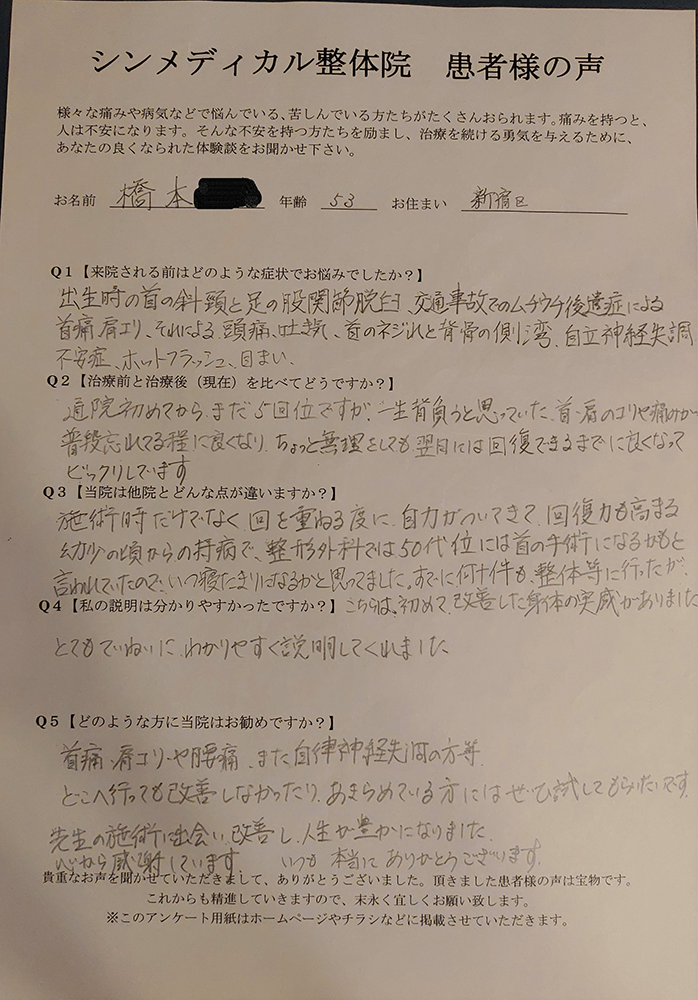 シンメディカル整体院 患者様の声
様々な痛みや病気などで悩んでいる、苦しんでいる方たちがたくさんおられます。痛みを持つと、
人は不安になります。そんな不安を持つ方たちを励まし、治療を続ける勇気を与えるために、
あなたの良くなられた体験談をお聞かせ下さい。
お名前 橋本 年齢 53 お住まい 新宿区
Q1【来院される前はどのような症状でお悩みでしたか？】
出生時の首の斜頸と足の股関節脱臼、交通事故でのムチウチ後遺症による
首痛肩コリ、それによる頭痛、吐き気、首のネジれと背骨の側湾、自立神経失調
不安症、ホットフラッシュ、目まい、
Q2【治療前と治療後（現在）を比べてどうですか？】
通院初めてから、まだ5回位ですが、一生背負うと思っていた、首・肩のコリや痛みが
普段忘れてる程に良くなり、ちょっと無理をしても翌日には回復できるまでに良くなって
ビックリしています
Q3【当院は他院とどんな点が違いますか？】
施術時だけでなく回を重ねる度に、自力がついてきて、回復力も高まる
幼少の頃からの持病で、整形外科では50代位には首の手術になるかもと
言われていたので、いつ寝たきりになるかと思ってました。すでに何十件も、整体等に行ったが、
Q4【私の説明は分かりやすかったですか？】こちらは、初めて、改善した身体の実感がありました
とてもていねいに、わかりやすく説明してくれました
Q5【どのような方に当院はお勧めですか？】
首痛、肩コリや腰痛、また自律神経失調の方等、
どこへ行っても改善しなかったり、あきらめている方にはぜひ試してもらいたいです。
先生の施術に出会い、改善し、人生が豊かになりました。
心から感謝しています。 いつも本当にありがとうございます。
貴重なお声を聞かせていただきまして、ありがとうございました。頂きました患者様の声は宝物です。
これからも精進していきますので、末永く宜しくお願い致します。
※このアンケート用紙はホームページやチラシなどに掲載させていただきます。